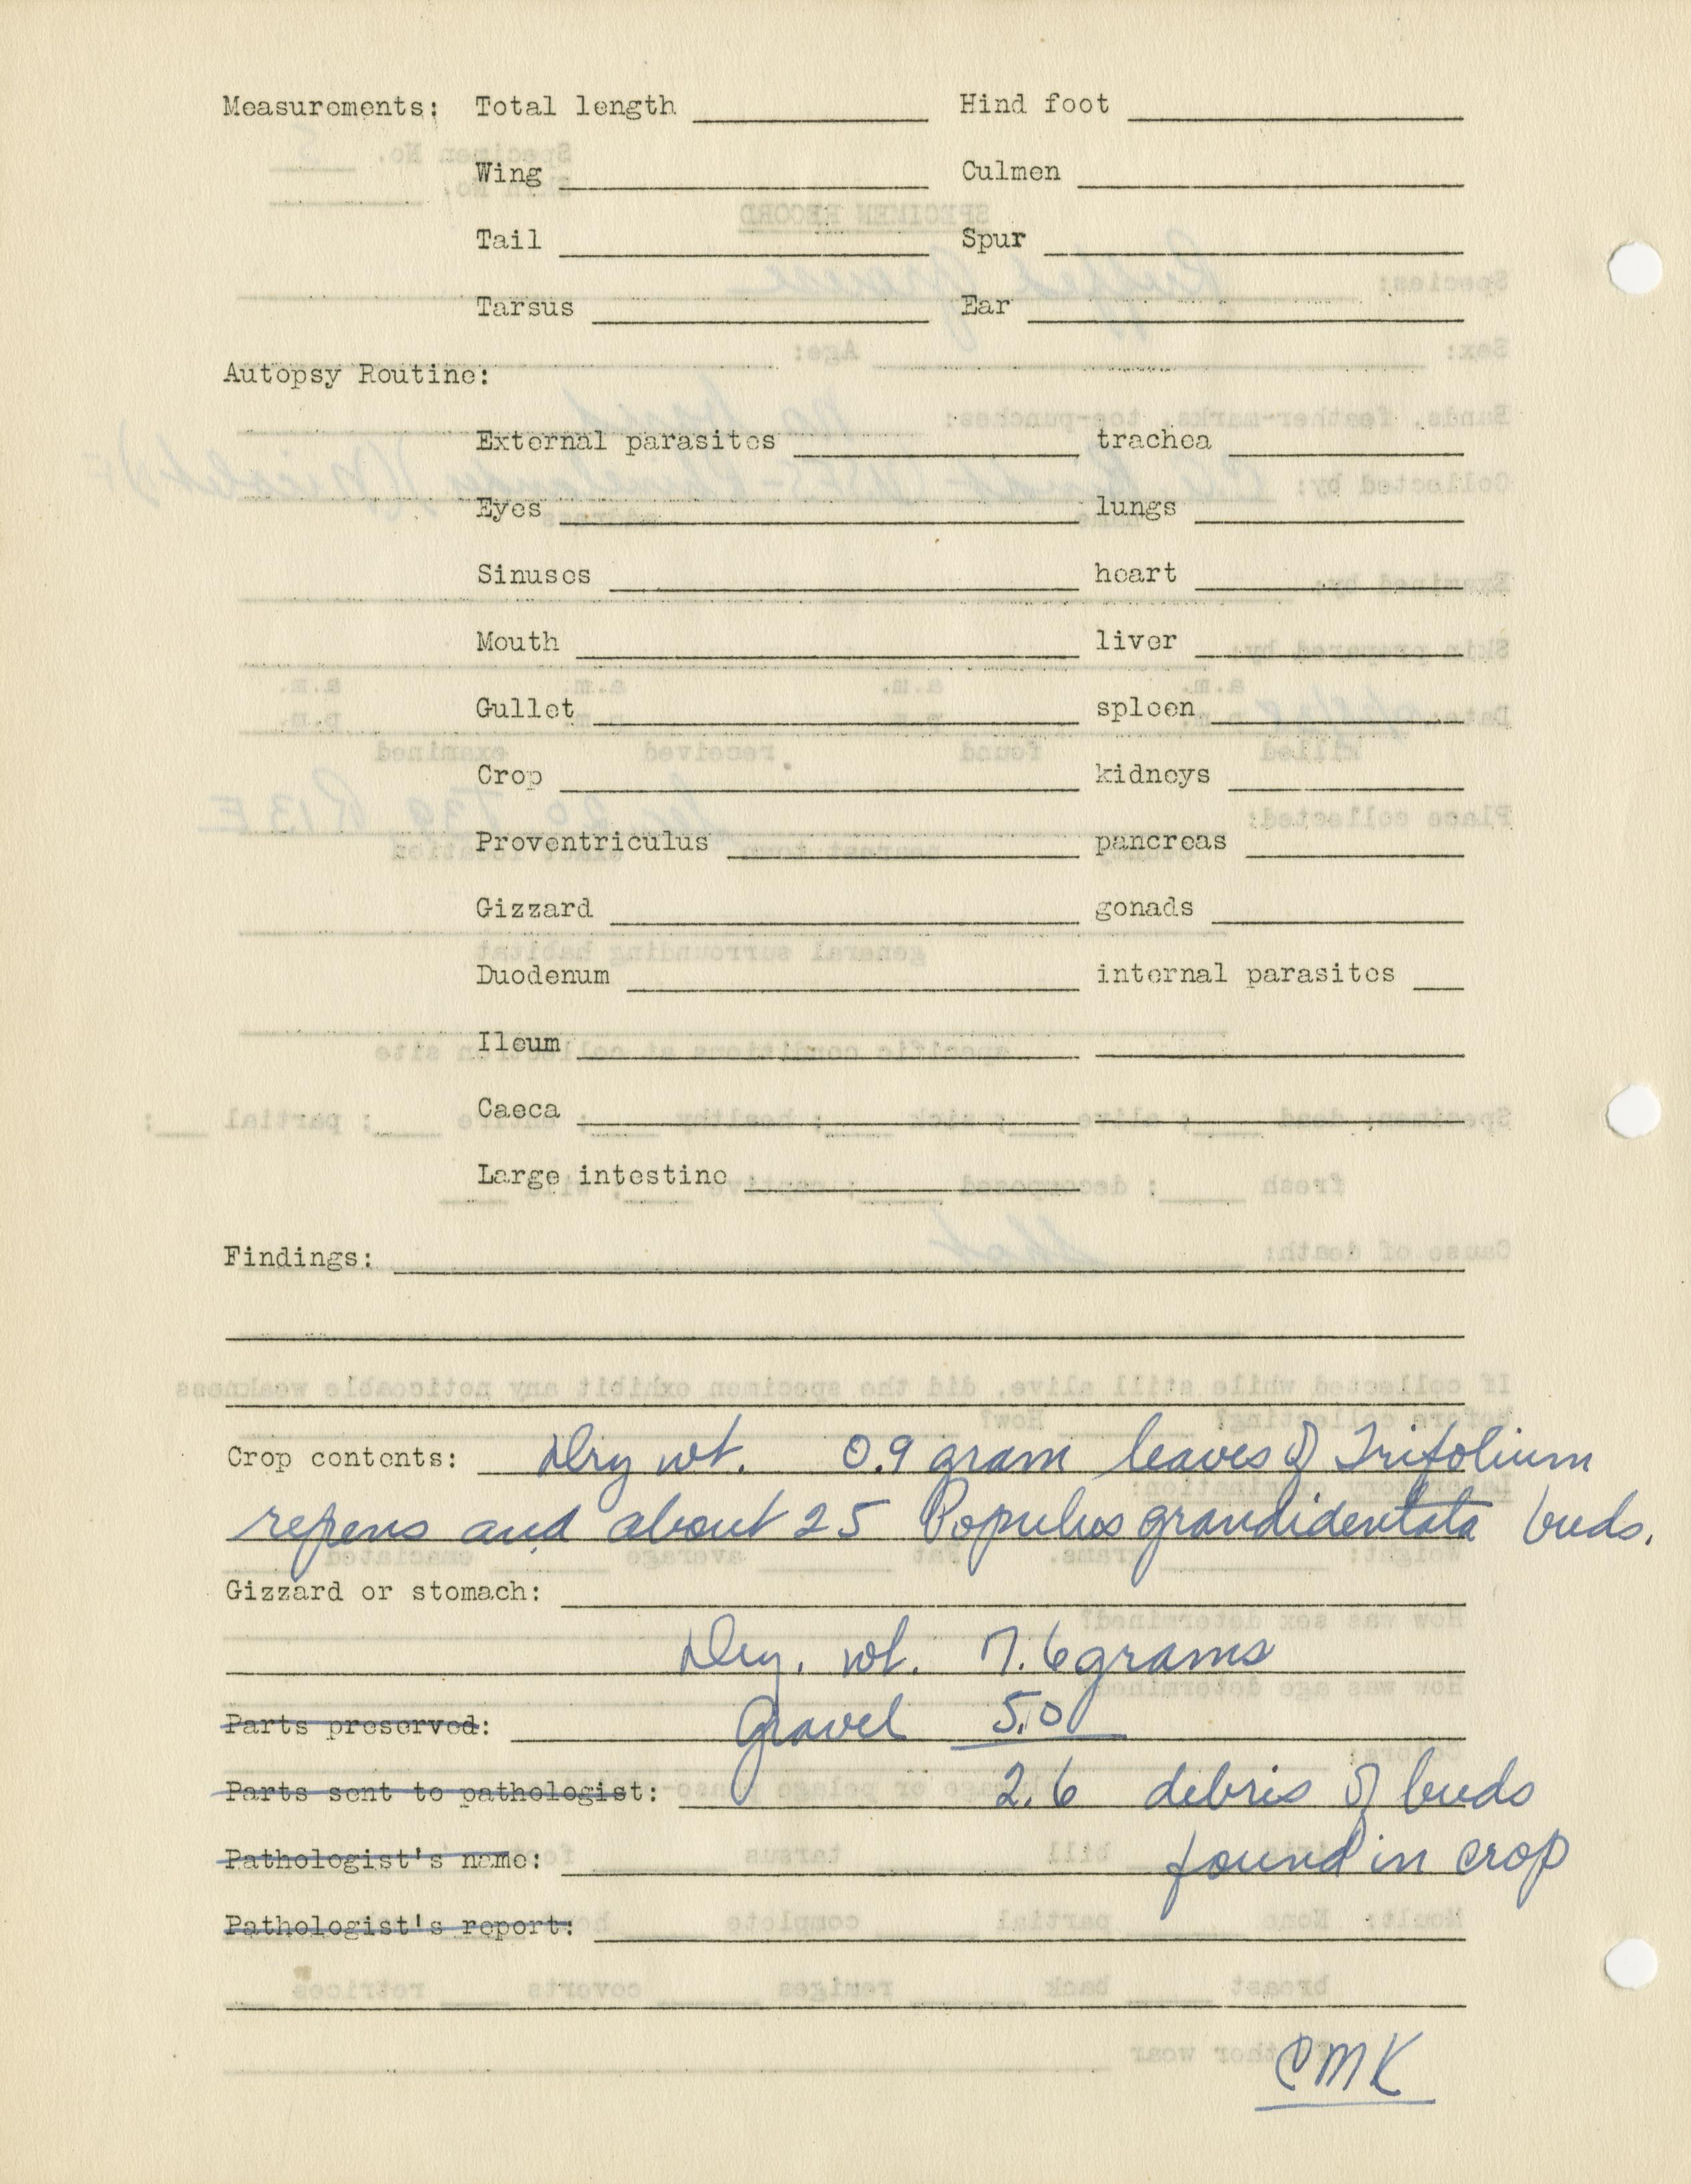 Measurements: Total length Hind foot
Wing Culmen
Tail Spur
Tarsus Ear
Autopsy Routine:
External parasites trachea
Eyes lungs
Sinuses heart
Mouth liver
Gullet spleen
Crop kidneys
Proventriculus pancreas
Gizzard gonads
Duodenum internal parasites
Ileum
Caeca
Large intestine
Findings:
Crop contents: Dry wt. 0.9 gram leaves of Trifolium
repens and about 25 Populus grandidentata buds.
Gizzard or stomach:
Dry. wt. 7.6 grams
Parts preserved: Gravel 5.0
Parts sent to pathologist: 2.6 debris of buds
Pathologist's name: found in crop
Pathologist's report:
CMK